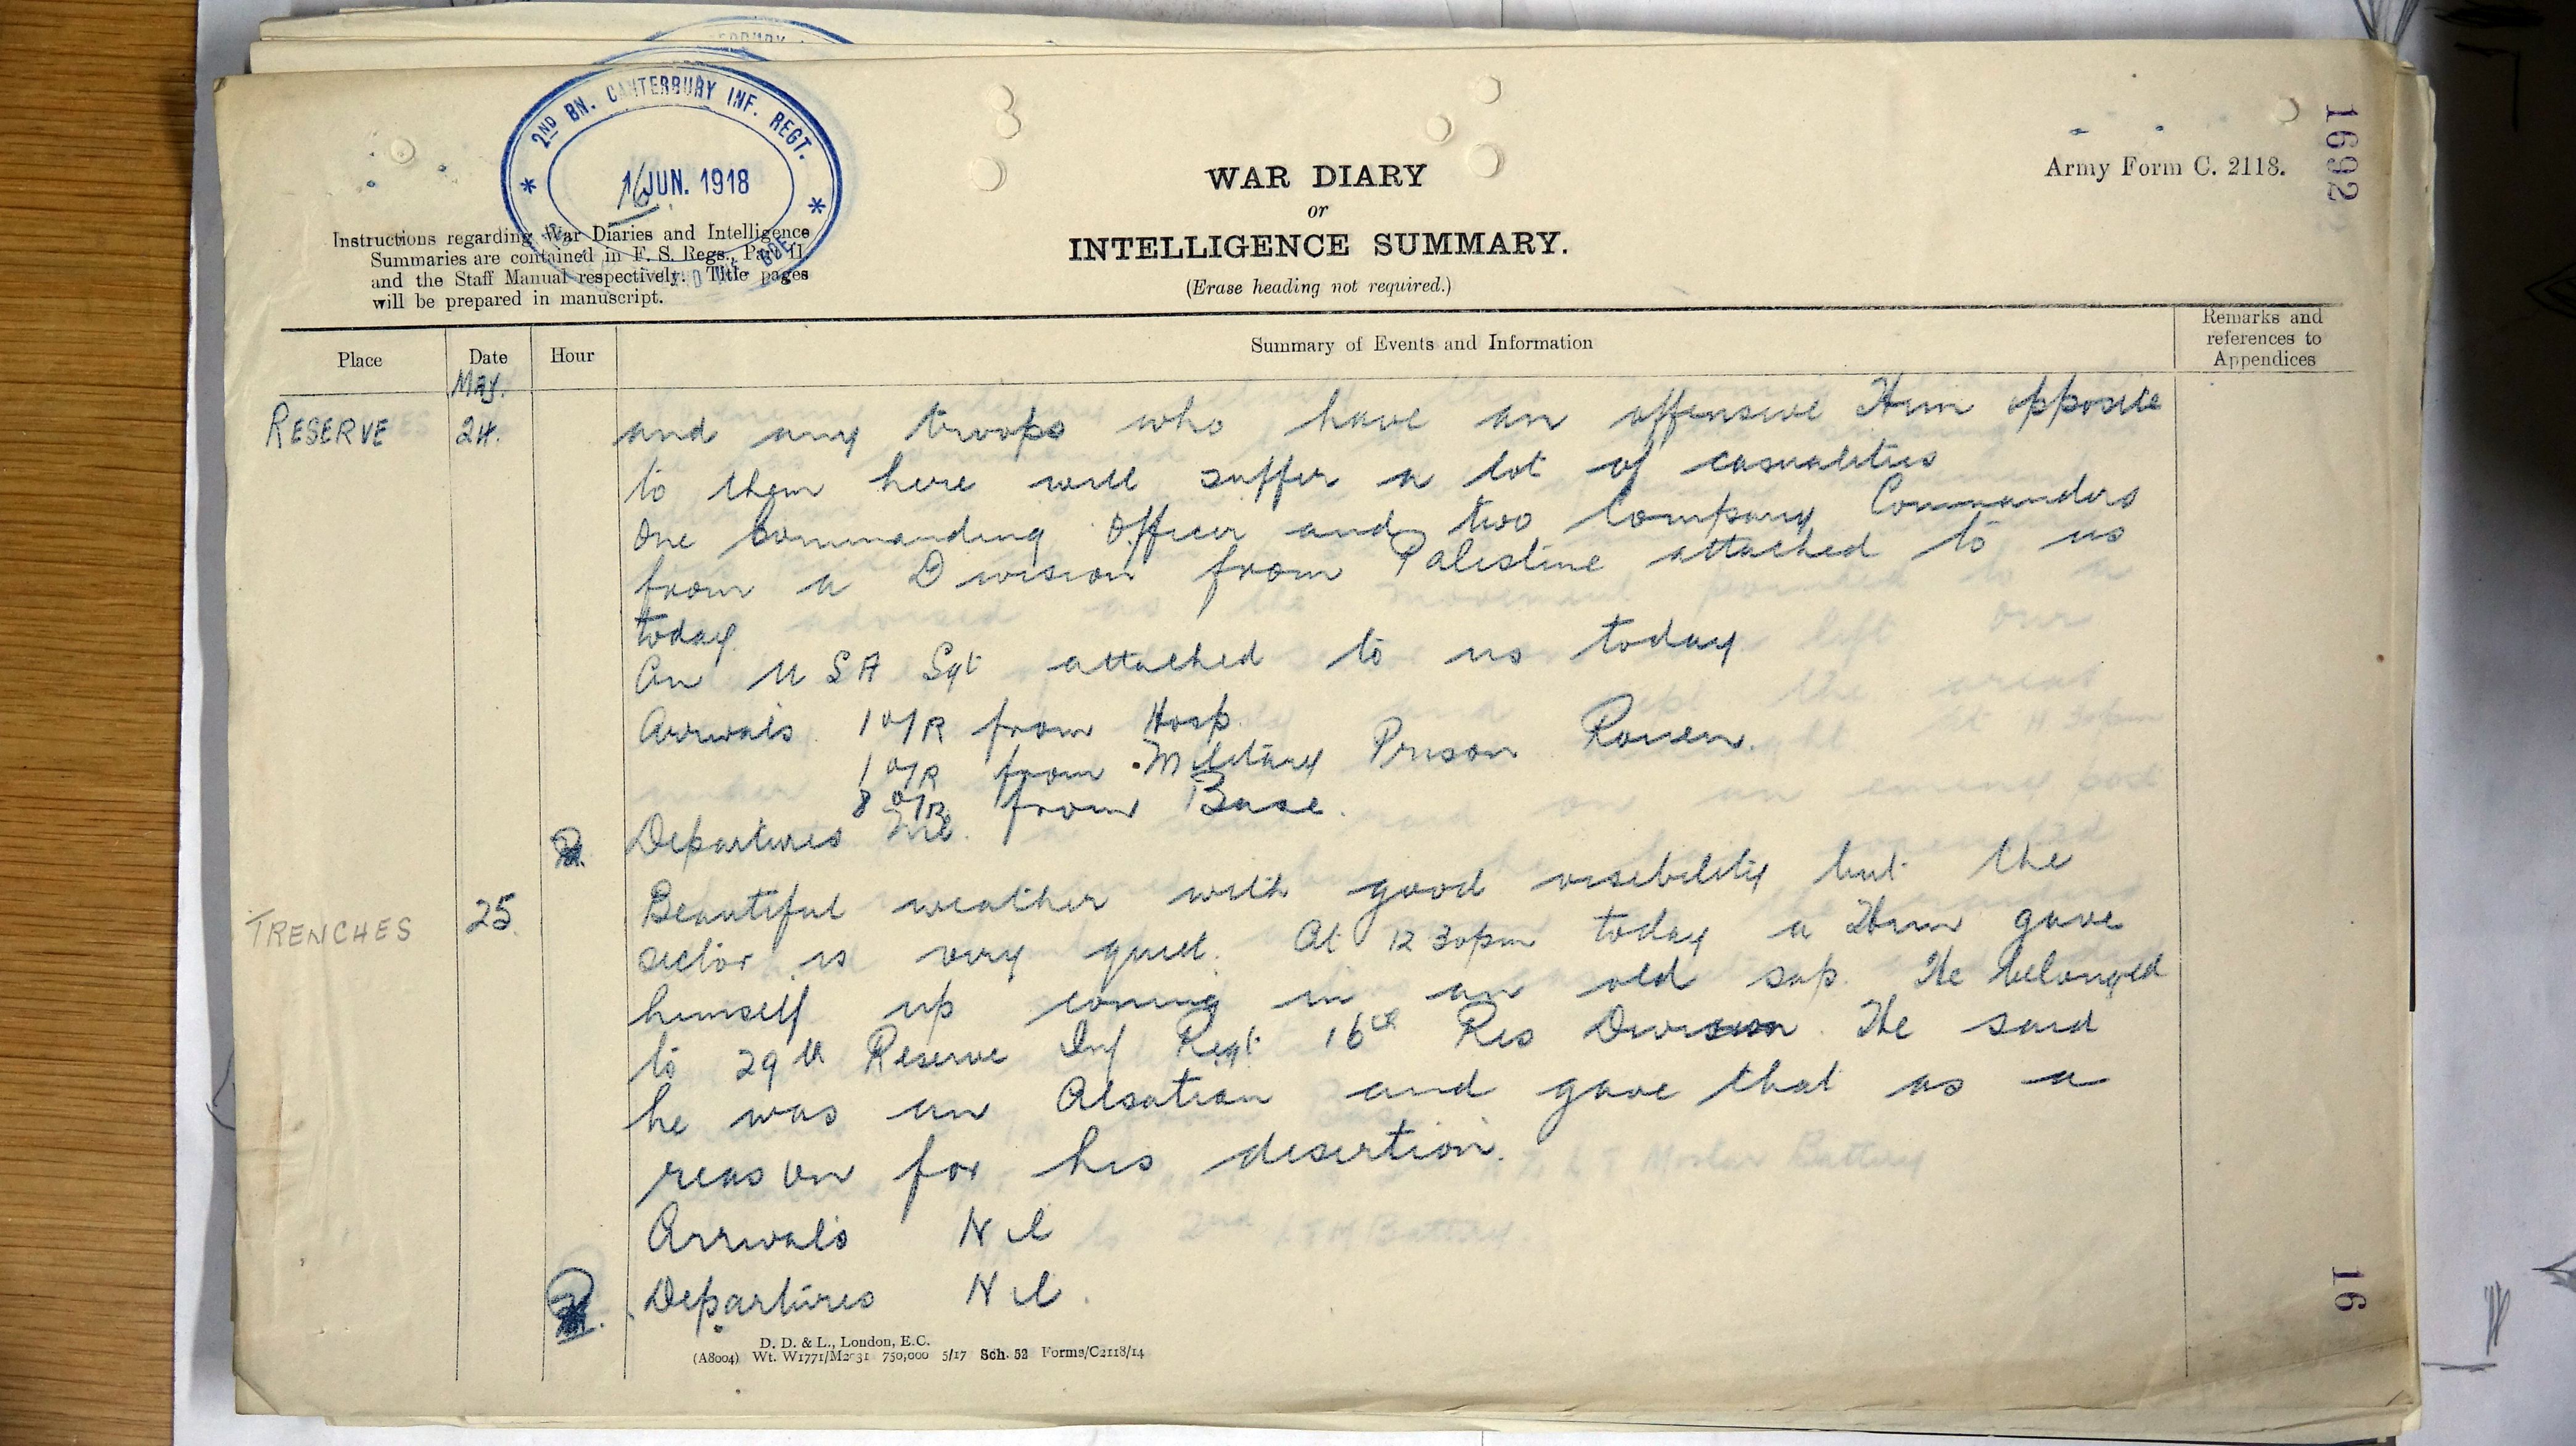 2ND BN. CANTERBURY INF. REGT.
16 JUN. 1918
Instructions regarding War Diaries and Intelligence
Summaries are contained in F. S. Regs., Part II.
and the Staff Manual respectively. Title pages
will be prepared in manuscript.
WAR DIARY
or
INTELLIGENCE SUMMARY.
(Erase heading not required.)
Army Form C. 2118.
1692
Place
Date
Hour
Summary of Events and Information
Remarks and
references to
Appendices
May.
RESERVE 24. and any troops who have an offensive Hun opposite
to them here will suffer a lot of casualities
One Commanding Officer and two Company Commanders
from a Division from Palestine attached to us
today.
An U S A Sgt attached to us today
Arrivals 1 O/R from Hosp.
1 O/R from Military Prison Rouen.
8 O/R from Base.
Departures Nil.
TRENCHES 25. Beautiful weather with good visibility but the
sector is very quiet. At 12 30pm today a Hun gave
himself up coming in an old sap. He belonged
to 29th Reserve Inf Regt 16th Res Division. He said
he was an Alsatian and gave that as a
reason for his desertion.
Arrivals Nil
Departures Nil.
16
D. D. & L., London, E.C.
(A8004) Wt. W1771/M2031 750,000 5/17 Sch. 52 Forms/C2118/14